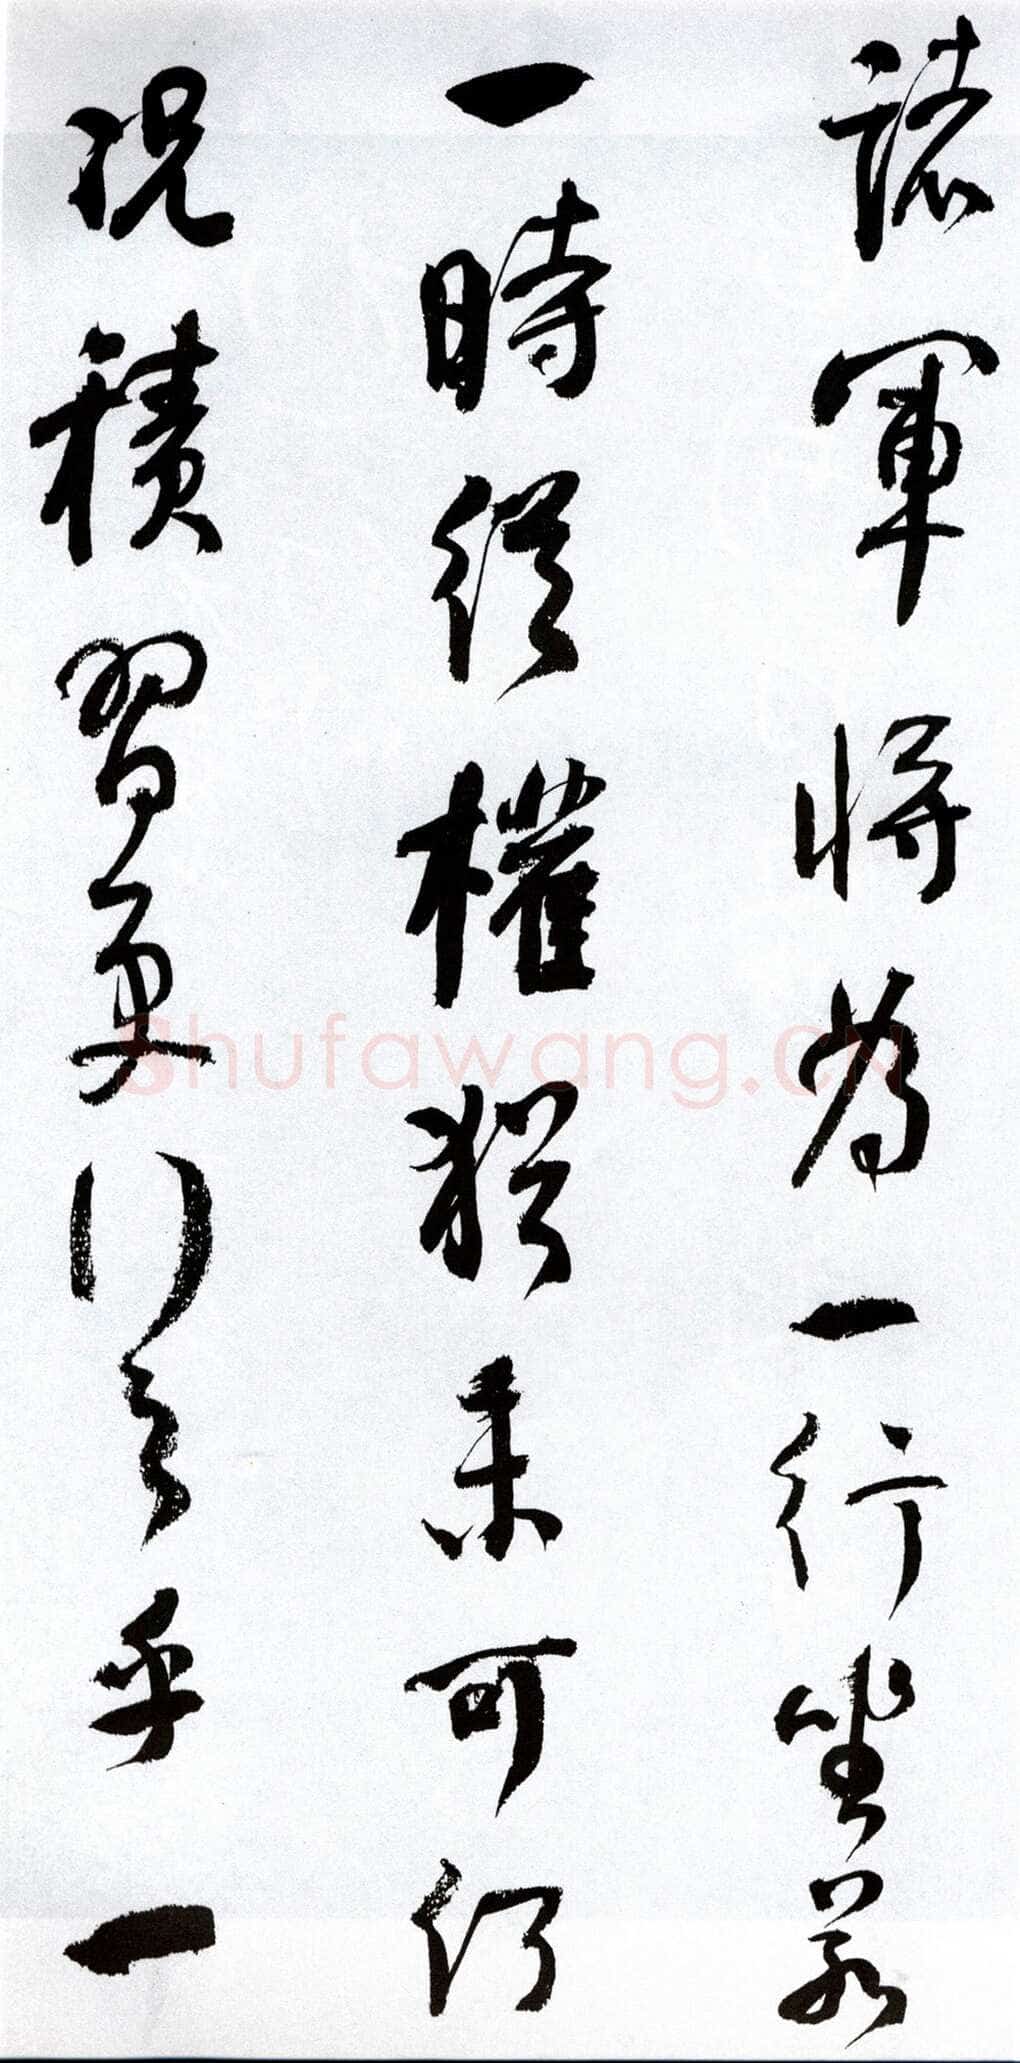 諸軍將為一行坐若
一時從權猶未可行
況積習更行之乎一
Shufawang.CN